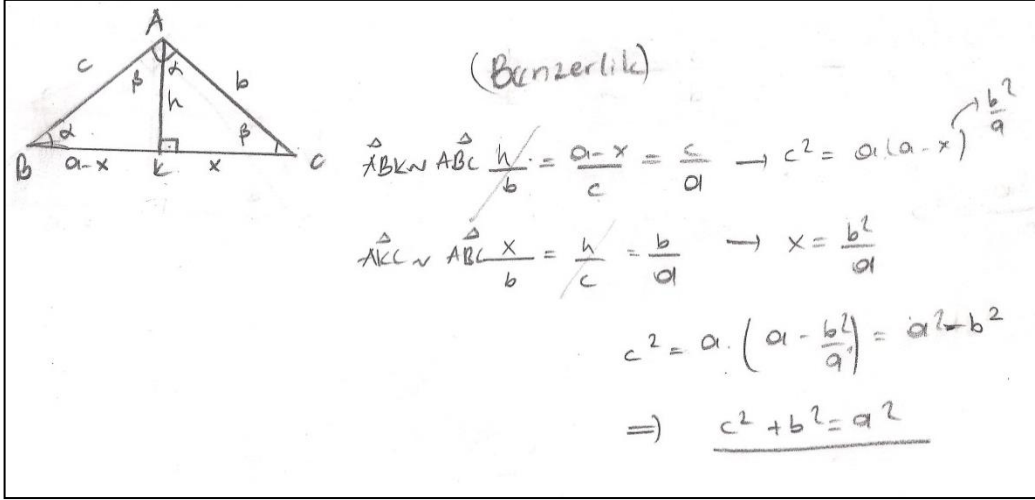 A
c
β
α
b
h
α
β
B
a-x
K
x
C
(Benzerlik)
ABK~ABC h/b = a-x/c = c/a → c² = a(a-x) → b²/a
AKC~ABC x/b = h/c = b/a → x = b²/a
c² = a.(a - b²/a) = a² - b²
⇒) c² + b² = a²